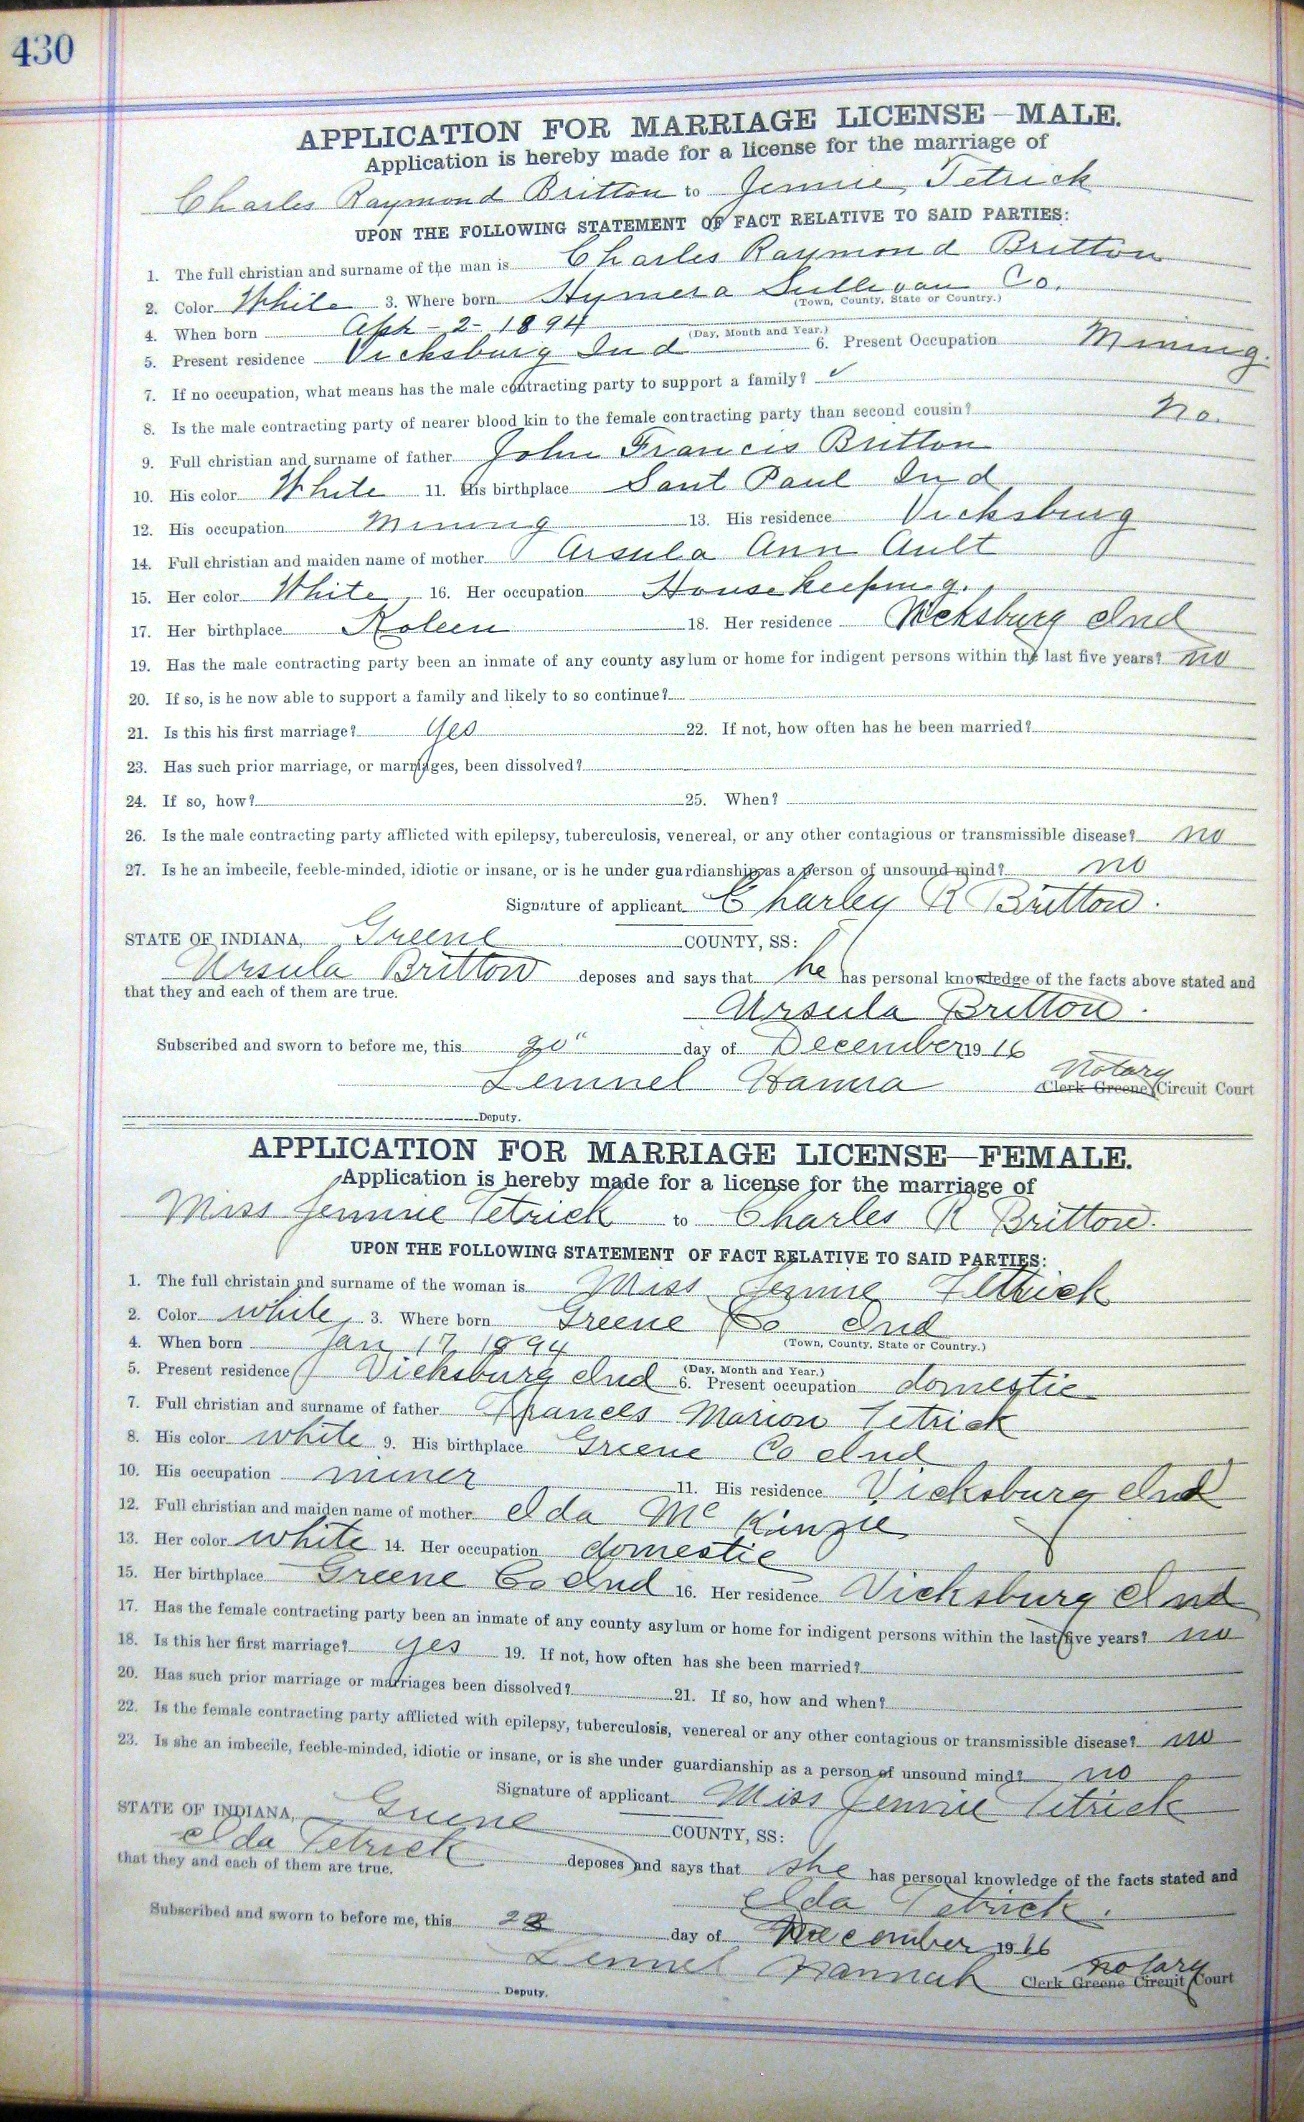 430
APPLICATION FOR MARRIAGE LICENSE—MALE.
Application is hereby made for a license for the marriage of
Charles Raymond Britton to Jennie Tetrick
UPON THE FOLLOWING STATEMENT OF FACT RELATIVE TO SAID PARTIES:
1. The full christian and surname of the man is Charles Raymond Britton
2. Color White 3. Where born Hymera Sullivan Co.
(Town, County, State or Country.)
4. When born Apr - 2 - 1894
(Day, Month and Year.)
5. Present residence Vicksburg Ind 6. Present Occupation Mining.
7. If no occupation, what means has the male contracting party to support a family? ✓
8. Is the male contracting party of nearer blood kin to the female contracting party than second cousin? No.
9. Full christian and surname of father John Francis Britton
10. His color White 11. His birthplace Sant Paul Ind
12. His occupation Mining 13. His residence Vicksburg
14. Full christian and maiden name of mother Arsula Ann Ault
15. Her color White 16. Her occupation Housekeeping.
17. Her birthplace Koleen 18. Her residence Vicksburg Ind
19. Has the male contracting party been an inmate of any county asylum or home for indigent persons within the last five years? no
20. If so, is he now able to support a family and likely to so continue?
21. Is this his first marriage? yes 22. If not, how often has he been married?
23. Has such prior marriage, or marriages, been dissolved?
24. If so, how? 25. When?
26. Is the male contracting party afflicted with epilepsy, tuberculosis, venereal, or any other contagious or transmissible disease? no
27. Is he an imbecile, feeble-minded, idiotic or insane, or is he under guardianship as a person of unsound mind? no
Signature of applicant Charley R Britton.
STATE OF INDIANA, Greene COUNTY, SS:
Ursula Britton deposes and says that he has personal knowledge of the facts above stated and
that they and each of them are true.
Ursula Britton.
Subscribed and sworn to before me, this 20" day of December 1916
Lemuel Hanna Notary
Clerk Greene Circuit Court
Deputy.
APPLICATION FOR MARRIAGE LICENSE—FEMALE.
Application is hereby made for a license for the marriage of
Miss Jennie Tetrick to Charles R Britton.
UPON THE FOLLOWING STATEMENT OF FACT RELATIVE TO SAID PARTIES:
1. The full christain and surname of the woman is Miss Jennie Tetrick
2. Color white 3. Where born Greene Co Ind
(Town, County, State or Country.)
4. When born Jan 17 1894
(Day, Month and Year.)
5. Present residence Vicksburg Ind 6. Present occupation domestic
7. Full christian and surname of father Frances Marion Tetrick
8. His color white 9. His birthplace Greene Co Ind
10. His occupation miner 11. His residence Vicksburg Ind
12. Full christian and maiden name of mother Ida McKinzie
13. Her color white 14. Her occupation domestic
15. Her birthplace Greene Co Ind 16. Her residence Vicksburg Ind
17. Has the female contracting party been an inmate of any county asylum or home for indigent persons within the last five years? no
18. Is this her first marriage? yes 19. If not, how often has she been married?
20. Has such prior marriage or marriages been dissolved? 21. If so, how and when?
22. Is the female contracting party afflicted with epilepsy, tuberculosis, venereal or any other contagious or transmissible disease? no
23. Is she an imbecile, feeble-minded, idiotic or insane, or is she under guardianship as a person of unsound mind? no
Signature of applicant Miss Jennie Tetrick
STATE OF INDIANA, Greene COUNTY, SS:
Ida Tetrick deposes and says that she has personal knowledge of the facts stated and
that they and each of them are true.
Ida Tetrick.
Subscribed and sworn to before me, this day of December 1916
Lemuel Hannah Notary
Clerk Greene Circuit Court
Deputy.